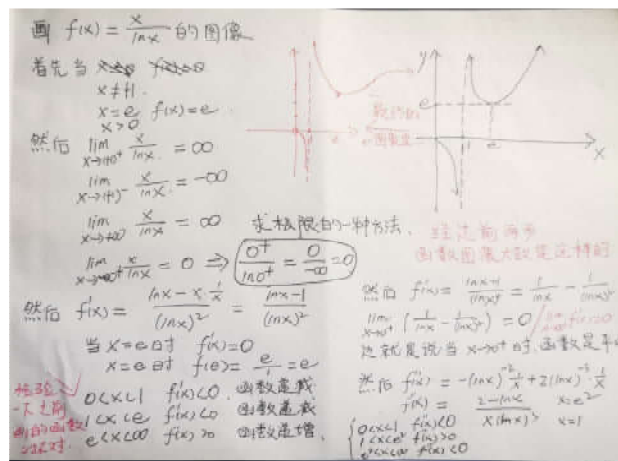 画 f(x) = x/lnx 的图像
首先当
x≠1.
x=e f(x)=e
x>0
然后 lim x→1+0⁺ x/lnx = ∞
lim x→(1)⁻ x/lnx = -∞
lim x→+∞ x/lnx = ∞
lim x/lnx = 0 ⇒ 0⁺/ln0⁺ = 0/-∞ = 0
求极限的一种方法.
然后 f'(x) = (lnx - x·1/x)/(lnx)² = (lnx-1)/(lnx)²
当 x=e时 f'(x)=0
x=e时 f(e) = e/1 = e
0<x<1 f'(x)<0. 函数递减
1<x<e f'(x)<0 函数递减
e<x<∞ f'(x)>0 函数递增.
检验
一下之前
画的函数
y
e
e
x
函数图像大致是这样的
然后 f'(x) = (lnx-1)/(lnx)² = 1/lnx - 1/(lnx)²
lim x→0⁺ (1/lnx - 1/(lnx)²) = 0
这就是说当 x→0⁺时.函数是平
然后 f''(x) = -(lnx)⁻² 1/x + 2(lnx)⁻³ 1/x
f''(x) = (2-lnx)/(x(lnx)³) x=e² x=1
0<x<1 f''(x)<0
1<x<e² f''(x)>0
e²<x<∞ f''(x)<0